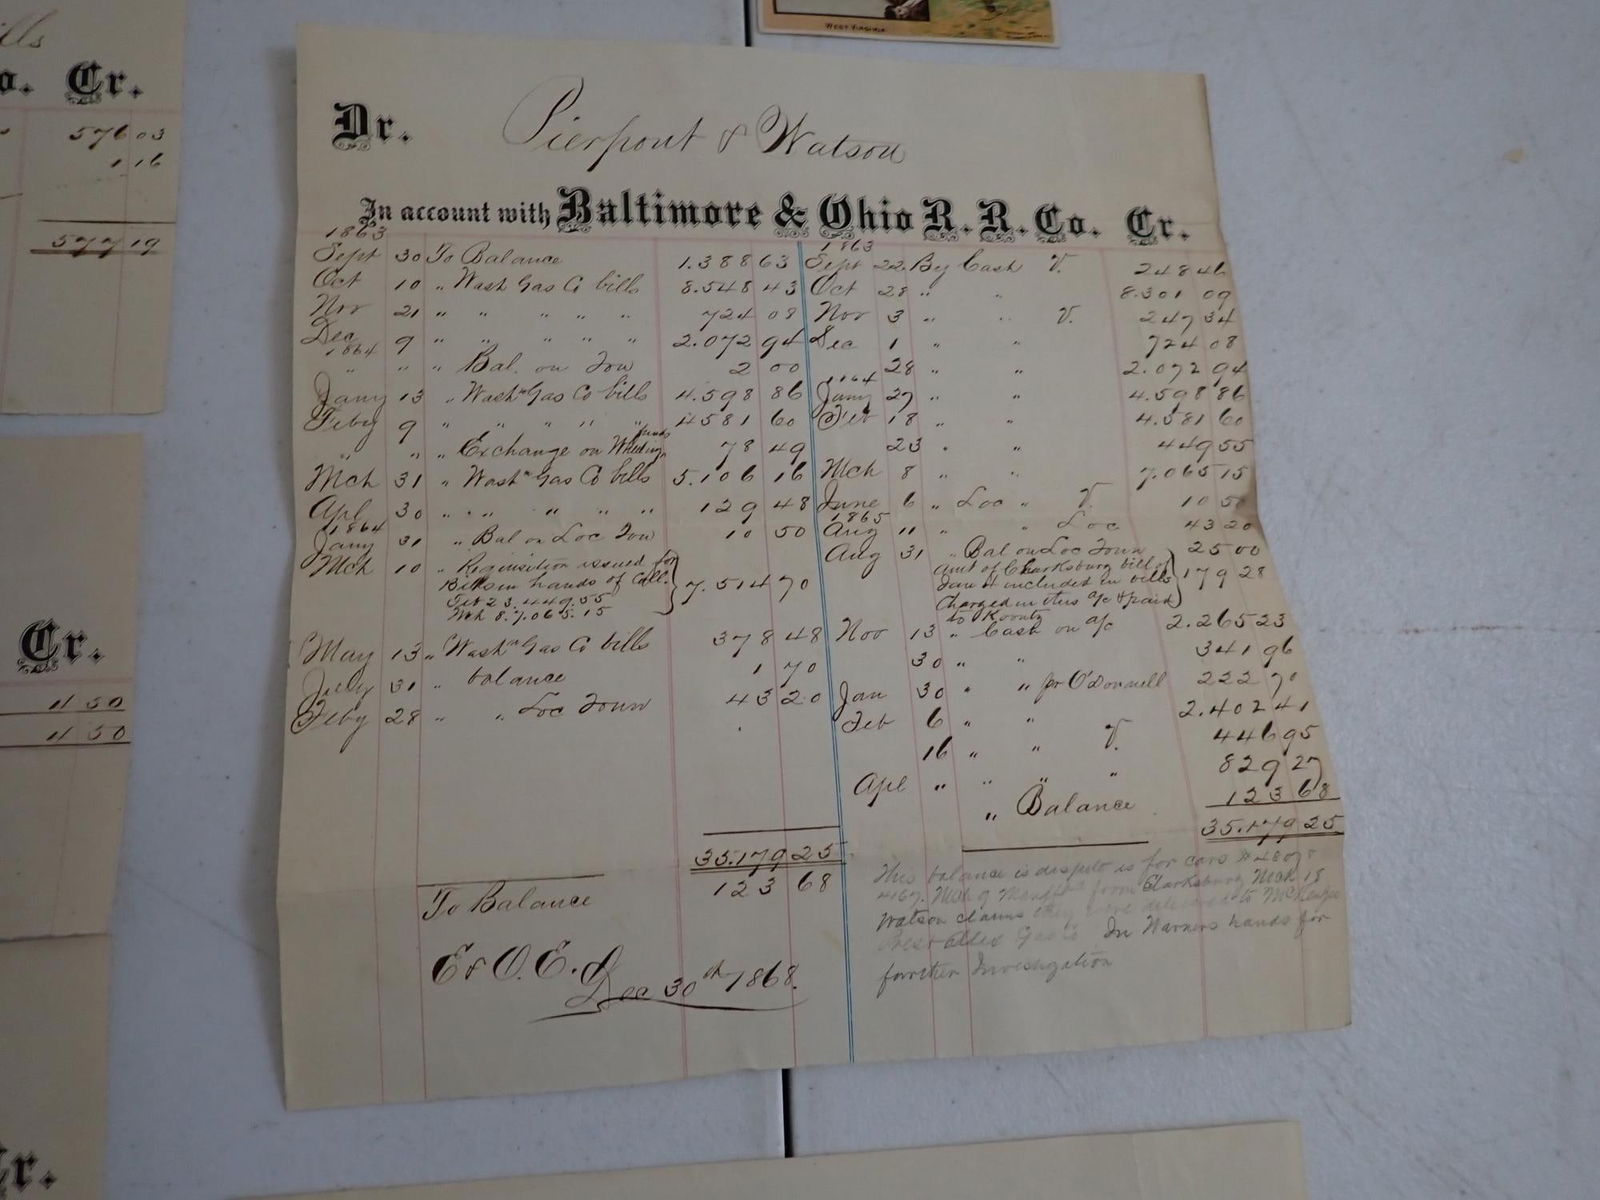 WEST VIRGINIA
lls
o. Cr.
576 03
1 16
577 19
Cr.
11 50
11 50
Cr.
Dr. Pierpont & Watson
In account with Baltimore & Ohio R. R. Co. Cr.
1863 1863
Sept 30 To Balance 1.388 63 Sept 22 By Cash V. 248 46
Oct 10 " Wash Gas Co bills 8.548 43 Oct 28 " " 8.301 09
Nov 21 " " " " " 724 08 Nov 3 " " V. 247 34
Dec 9 " " " " " 2.072 94 Dec 1 " " 724 08
1864
" " " Bal. on Tow 2 00 28 " " 2.072 94
1864
Jany 13 " Washn Gas Co bills 4.598 86 Jany 27 " " 4.598 86
Feby 9 " " " " " 4581 60 Feb 18 " " 4.581 60
" " " Exchange on Wheeling funds 78 49 23 " " 449 55
Mch 31 " Washn Gas Co bills 5.106 16 Mch 8 " " 7.065 15
Apl 30 " " " " " " 129 48 June 6 " Loc " V. 10 50
1864 1865
Jany 31 " Bal on Loc Tow 10 50 Aug 11 " " Loc 43 20
Mch 10 " Requisition issued for Aug 31 " Bal on Loc Tonn 25 00
Bills in hands of Coll. 7.514 70 amt of Clarksburg bill of
Feb 23. 449.55 Jan 4 included in bills 179 28
Mch 8. 7.065.15 Charged in this a/c & paid
to Koontz
May 13 " Washn Gas Co bills 378 48 Nov 13 " Cash on a/c 2.265 23
July 31 " balance 1 70 30 " " 341 96
Feby 28 " " Loc Tonn 43 20 Jan 30 " " pr O'Donnell 222 70
Feb 6 " " 2.402 41
16 " " V. 446 95
Apl " " " " 829 27
" Balance 123 68
35.179 25 35.179 25
To Balance 123 68
E & O. E.
Dec 30th 1868.
This balance is disputed is for cars #
4167. Mch 9 from Clarksburg Mch 18
Watson claims they were delivered to
In Warners hands for
further Investigation